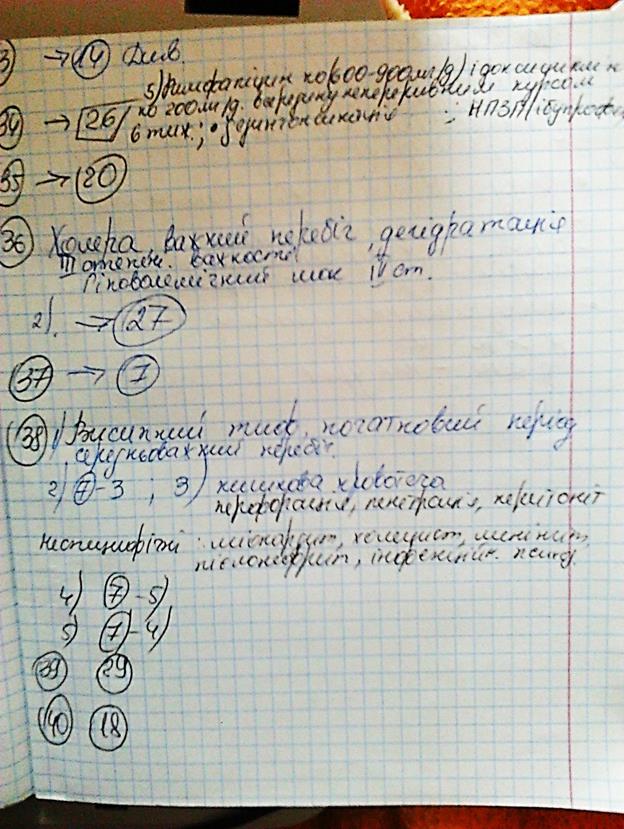 3 → 14 Див.
5) Рифампіцин по (600-900мг/д) і доксициклін
34 → 26 по 200мг/д. всередину неперервним курсом
6 тиж.; • дезінтоксикація ; НПЗП (ібупрофе
35 → 20
36 Холера, важкий перебіг, дегідратація
III степені важкості
Гіповолемічний шок IV ст.
2). → 27
37 → 7
38 1) Висипний тиф, початковий період
середньоважкий перебіг.
2) 7-3 ; 3) кишкова кровотеча
перфорація, пенетрація, перитоніт
неспецифічні : міокардит, холецист, менінгіт,
пієлонефрит, інфекційн. психоз.
4) 7-5)
5) 7-4)
39 29
40 18